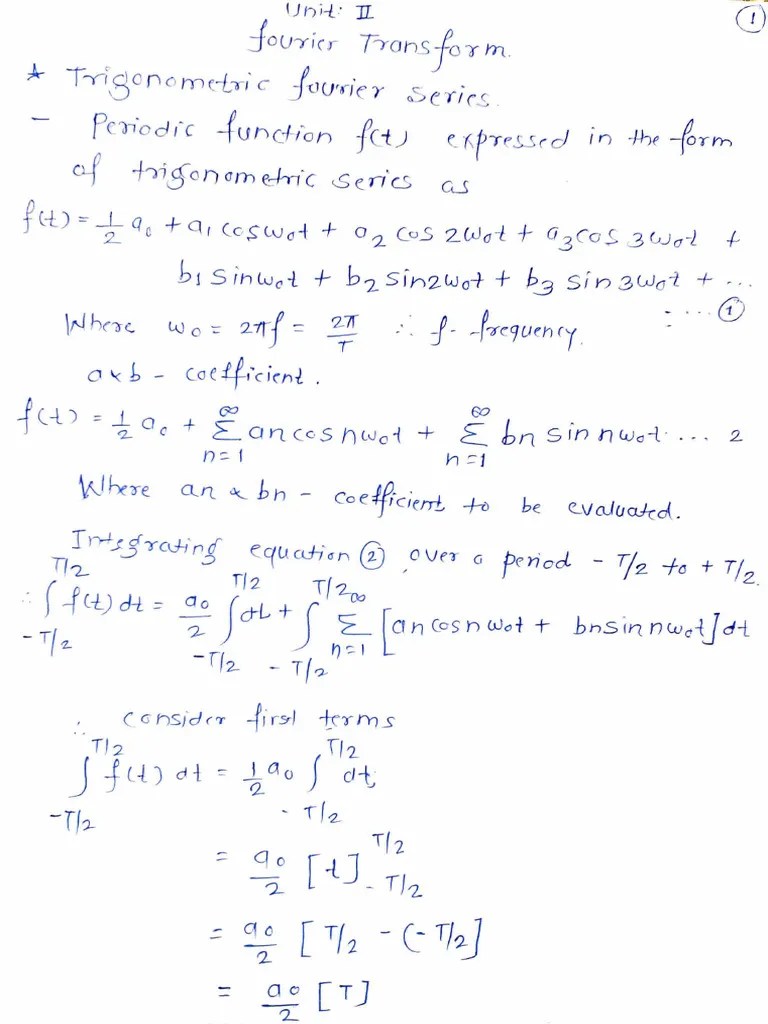 Unit: II
①
Fourier Transform.
* Trigonometric fourier series.
- Periodic function f(t) expressed in the form
of trigonometric series as
f(t) = 1/2 a₀ + a₁ cosω₀t + a₂ cos 2ω₀t + a₃cos 3ω₀t +
b₁ sinω₀t + b₂ sin2ω₀t + b₃ sin3ω₀t + ...
- ... ①
Where ω₀ = 2πf = 2π/T ∴ f- frequency.
a & b - coefficient.
f(t) = 1/2 a₀ + ∞Σn=1 an cos nω₀t + ∞Σn=1 bn sin nω₀t ... 2
Where an & bn - coefficient to be evaluated.
Integrating equation ② over a period - T/2 to + T/2.
∴ ∫-T/2^T/2 f(t) dt = a₀/2 ∫-T/2^T/2 dt + ∫-T/2^T/2 ∞Σn=1 [an cos nω₀t + bn sin nω₀t] dt
∴ consider first terms
∫-T/2^T/2 f(t) dt = 1/2 a₀ ∫-T/2^T/2 dt
= a₀/2 [t]-T/2^T/2
= a₀/2 [T/2 - (-T/2]
= a₀/2 [T]